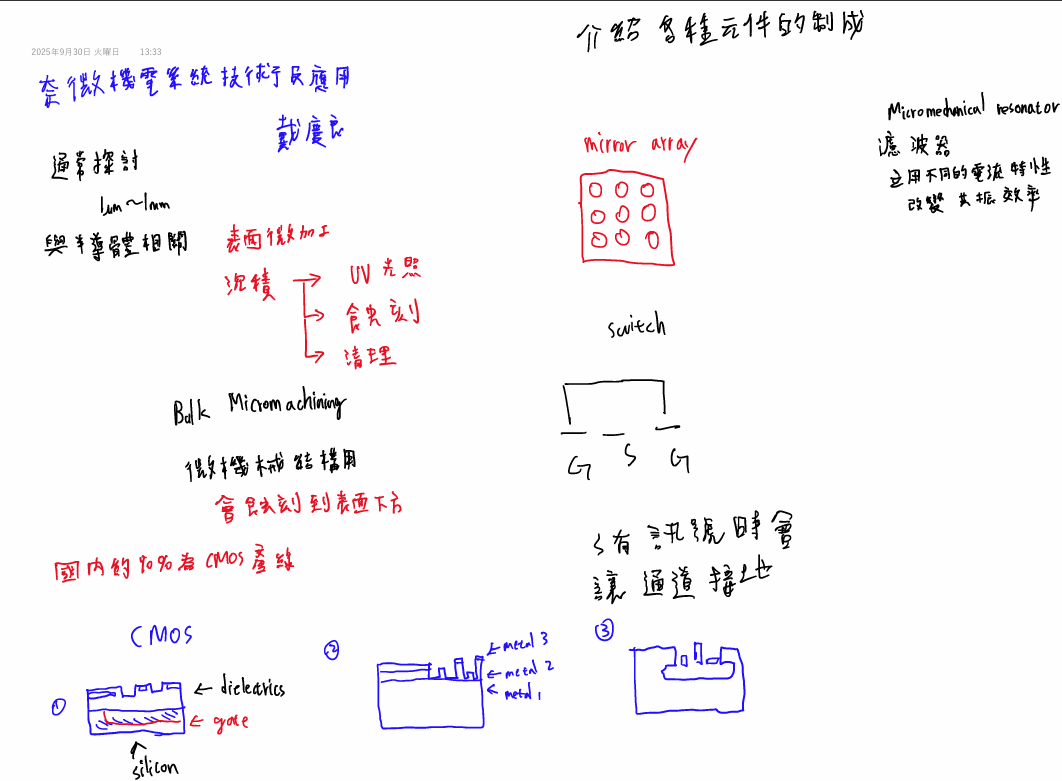 2025年9月30日 火曜日 13:33
奈微機電系統技術及應用
戴慶良
通常探討
1um~1mm
與半導體相關
表面微加工
沉積
UV光照
蝕刻
清理
Bulk Micromachining
微機械結構用
會蝕刻到表面下方
國內約90%為CMOS產線
CMOS
①
dielectrics
gate
silicon
②
metal 3
metal 2
metal 1
③
介紹各種元件的制成
mirror array
switch
G S G
S有訊號時會
讓通道接地
Micromechanical resonator
濾波器
立用不同的電流特性
改變共振效率